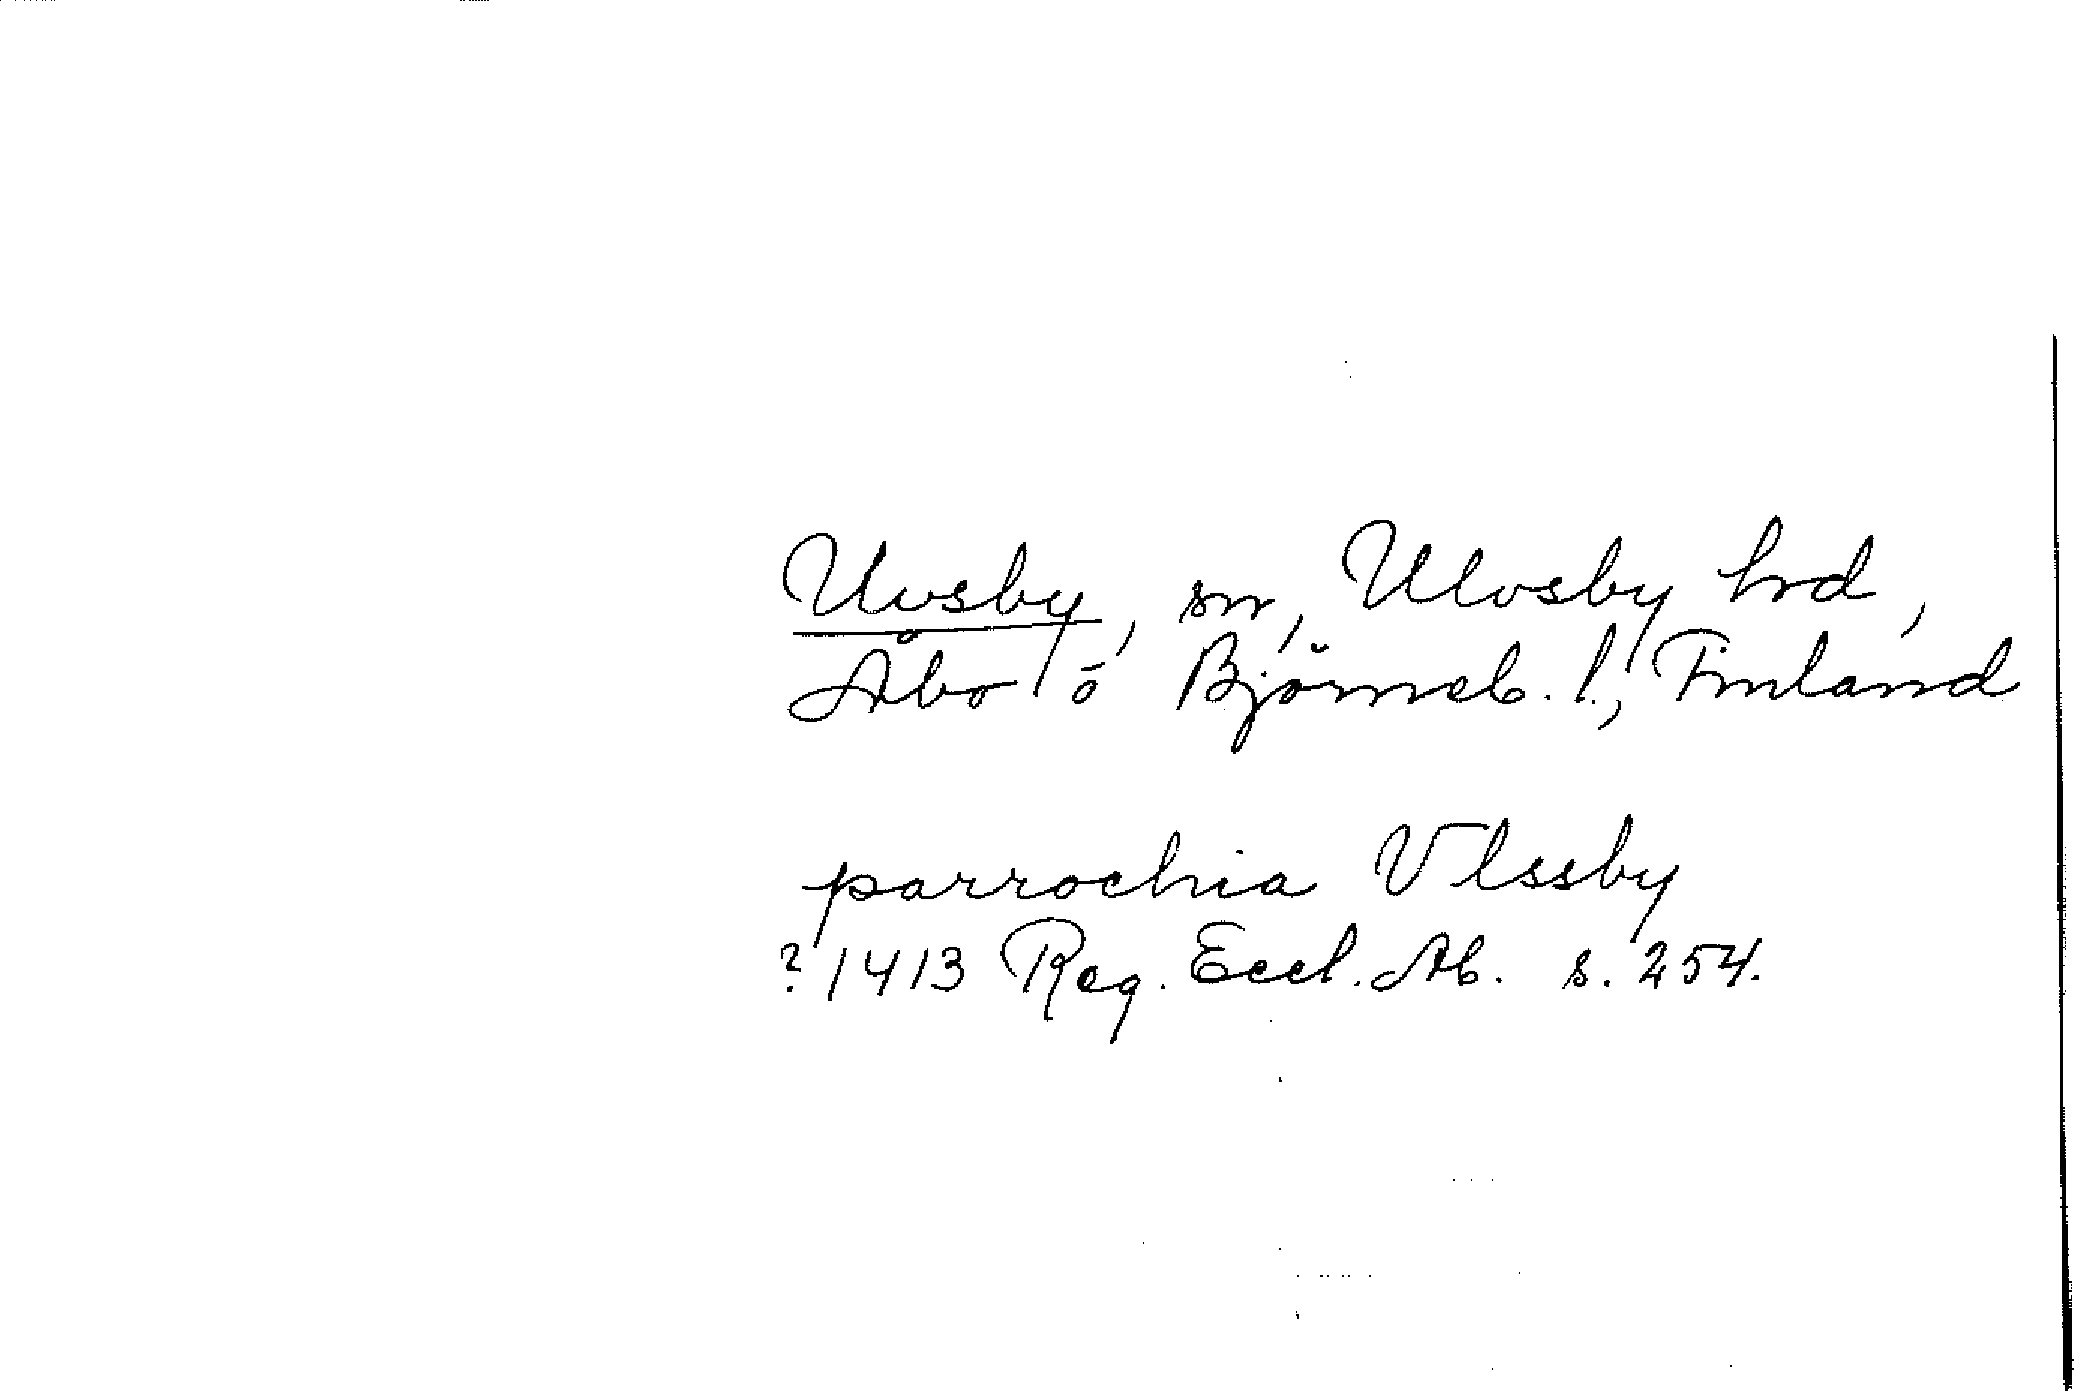 Ulvsby, sn, Ulvsby hrd,
Åbo o Björneb. l., Finland
parrochia Vlssby
? 1413 Reg. Eccl. Ab. s. 254.